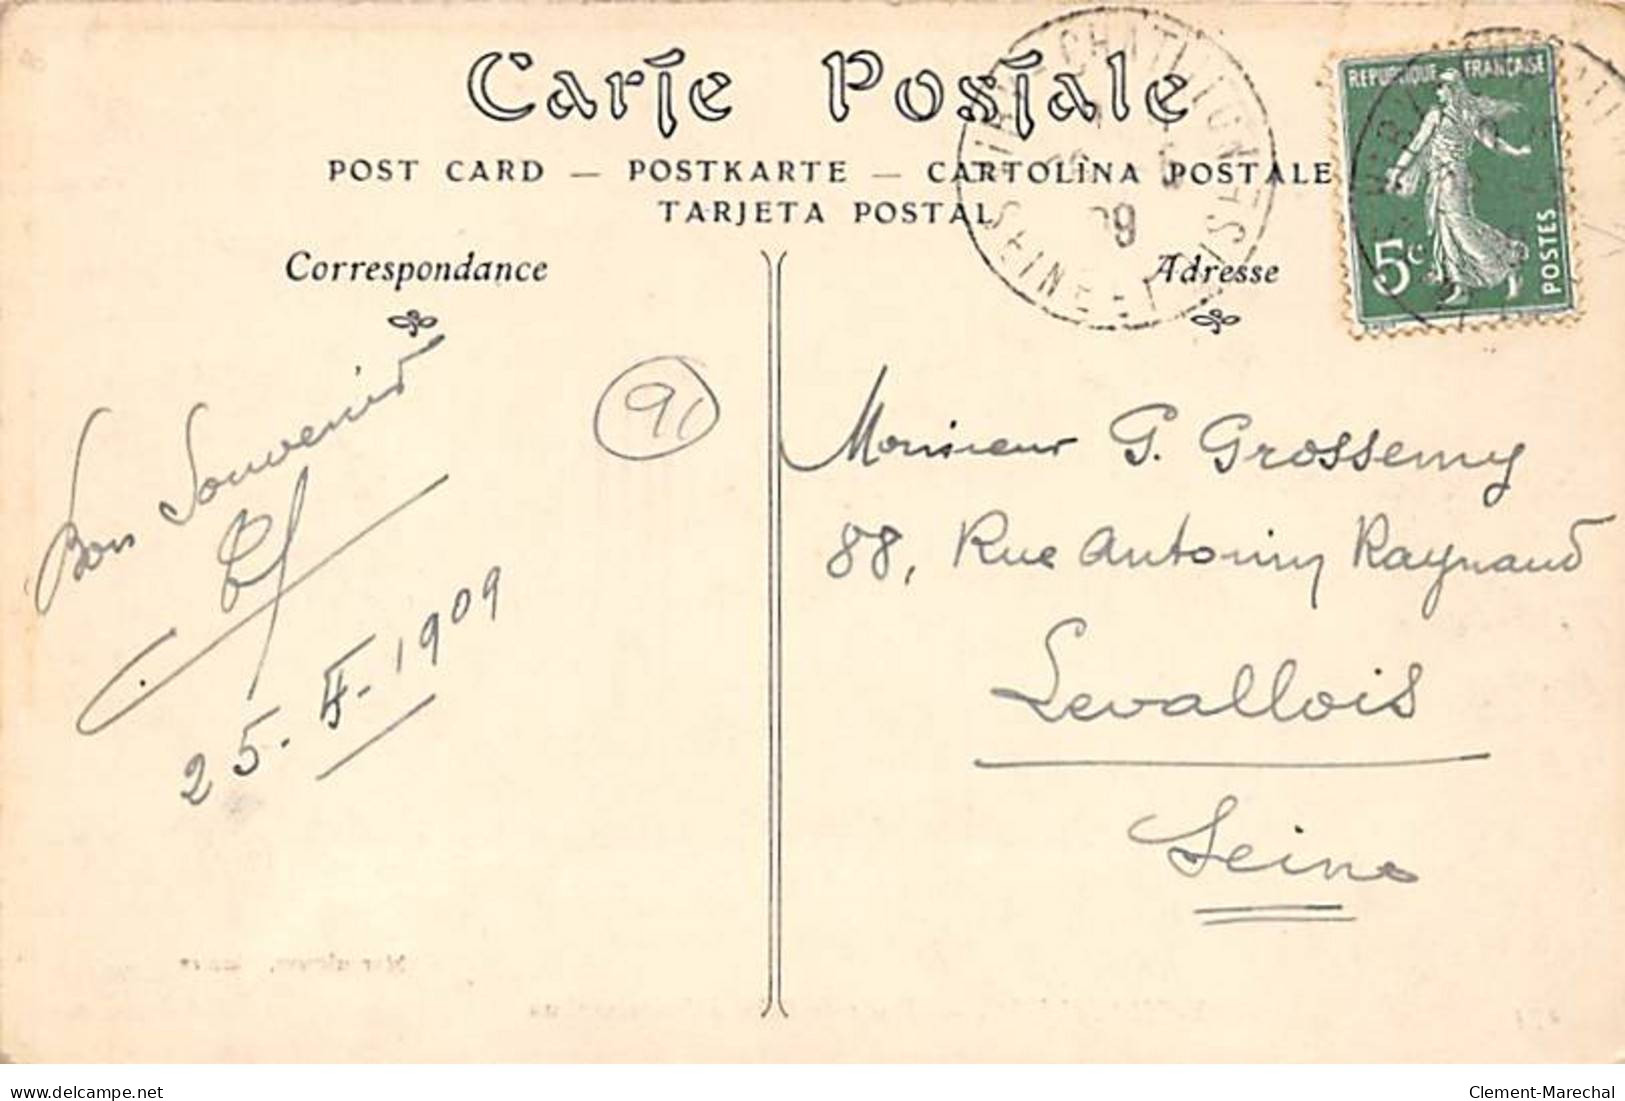 Carte Postale
POST CARD — POSTKARTE — CARTOLINA POSTALE
TARJETA POSTAL
Correspondance
Adresse
REPUBLIQUE FRANÇAISE
5c
POSTES
CHATILLON
SEINE-
09
91
Bon Souvenir
25-4-1909
Monsieur G. Grossemy
88, Rue Antonin Raynaud
Levallois
Seine
delcampe.net
Clement-Marechal